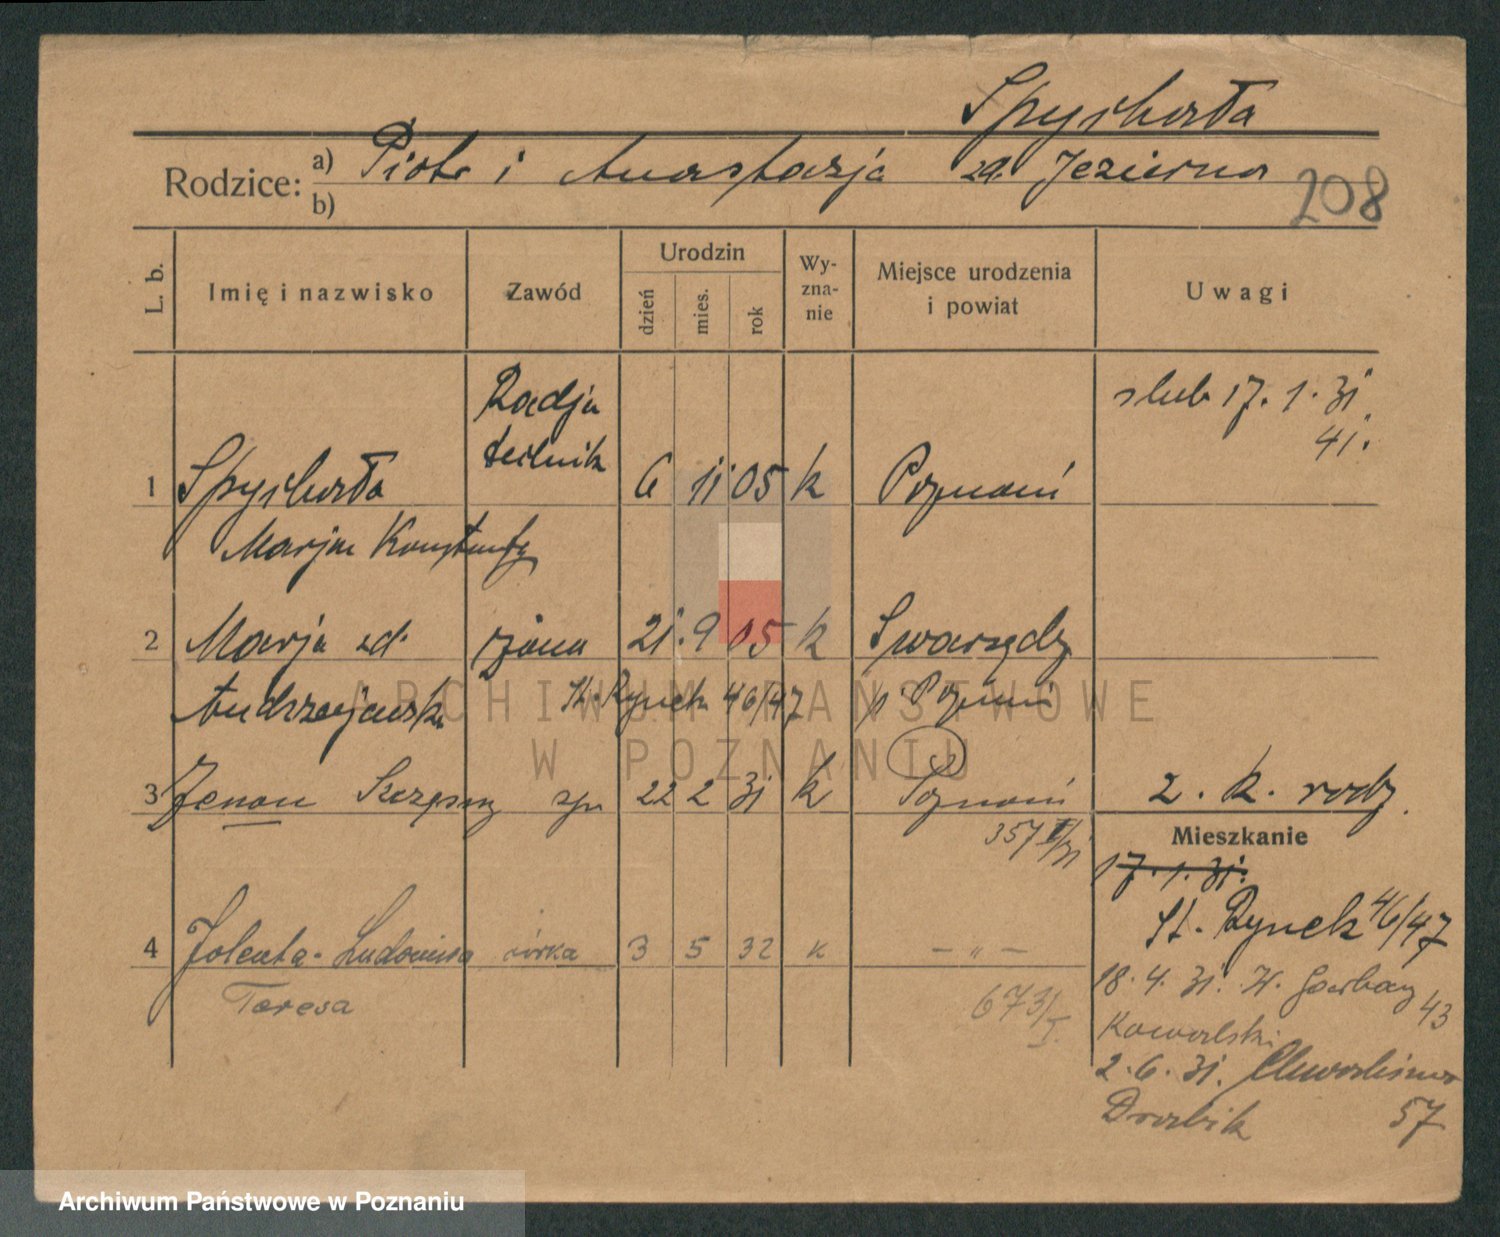 Spychała
Rodzice: a) Piotr i Anastazja zd. Jezierna
b)
208
L. b.
Imię i nazwisko
Zawód
Urodzin
dzień
mies.
rok
Wy-
zna-
nie
Miejsce urodzenia
i powiat
Uwagi
Radjo
technik
slub 17. 1. 31
41.
1 Spychała 6 11 05 k Poznań
Marjan Konstanty
2 Marja zd. żona 21. 9 05 k Swarzędz
Andrzejewska St. Rynek 46/47 p. Poznań
3 Zenon Szczęsny syn 22 2 31 k Poznań 2. k. rodz.
357 II/31
Mieszkanie
17. 1. 31.
St. Rynek 46/47
4 Jolenta-Ludowika córka 3 5 32 k — " —
Teresa
673/I.
18. 4. 31. W. Garbary 43
Kowalski
2. 6. 31.
57
ARCHIWUM PAŃSTWOWE
W POZNANIU
Archiwum Państwowe w Poznaniu